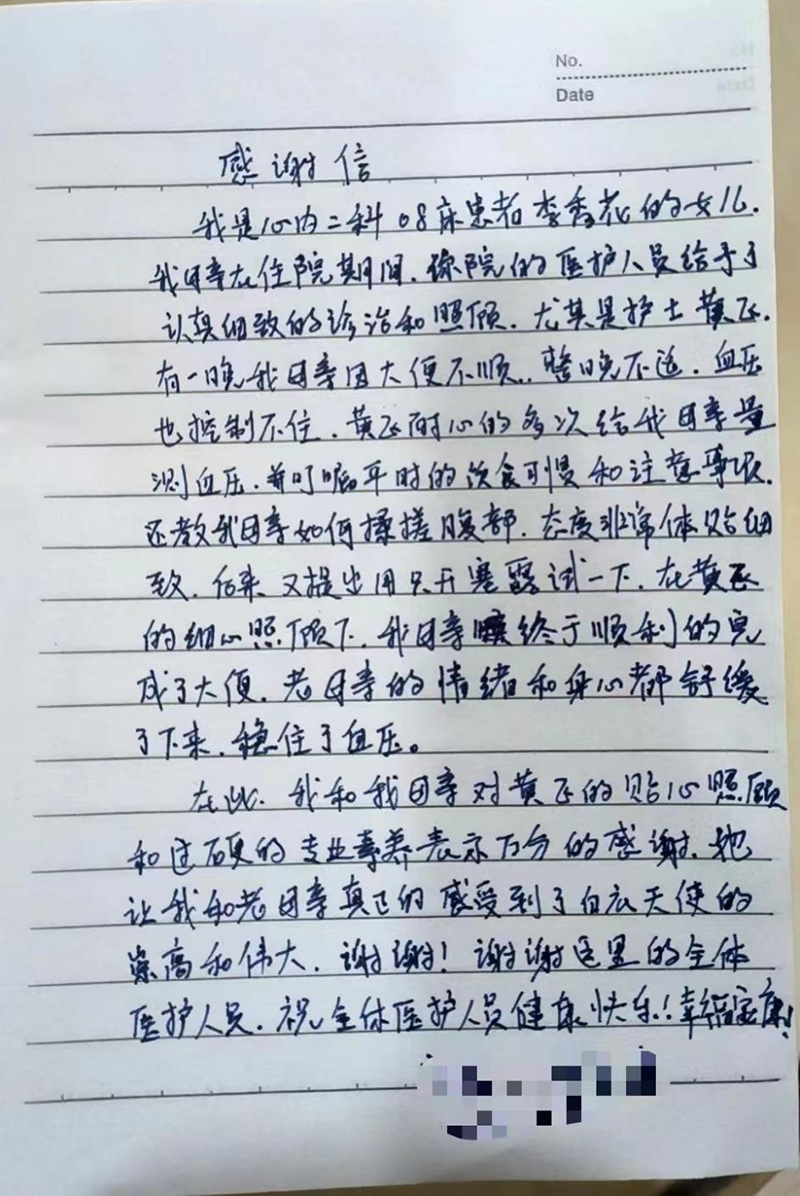 No.
Date
感谢信
我是心内二科08床患者李秀花的女儿.
我母亲在住院期间.你院的医护人员给予了
认真细致的诊治和照顾.尤其是护士黄飞.
有一晚我母亲因大便不顺..整晚不适.血压
也控制不住.黄飞耐心的多次给我母亲量
测血压.并叮嘱平时的饮食习惯和注意事项.
还教我母亲如何揉搓腹部.态度非常体贴细
致.后来又提出用只开塞露试一下.在黄飞
的细心照顾下.我母亲终于顺利的完
成了大便.老母亲的情绪和身心都舒缓
了下来.稳住了血压。
在此.我和我母亲对黄飞的贴心照顾
和过硬的专业素养表示万分的感谢.她
让我和老母亲真正的感受到了白衣天使的
崇高和伟大.谢谢!谢谢这里的全体
医护人员.祝全体医护人员健康快乐!幸福安康!